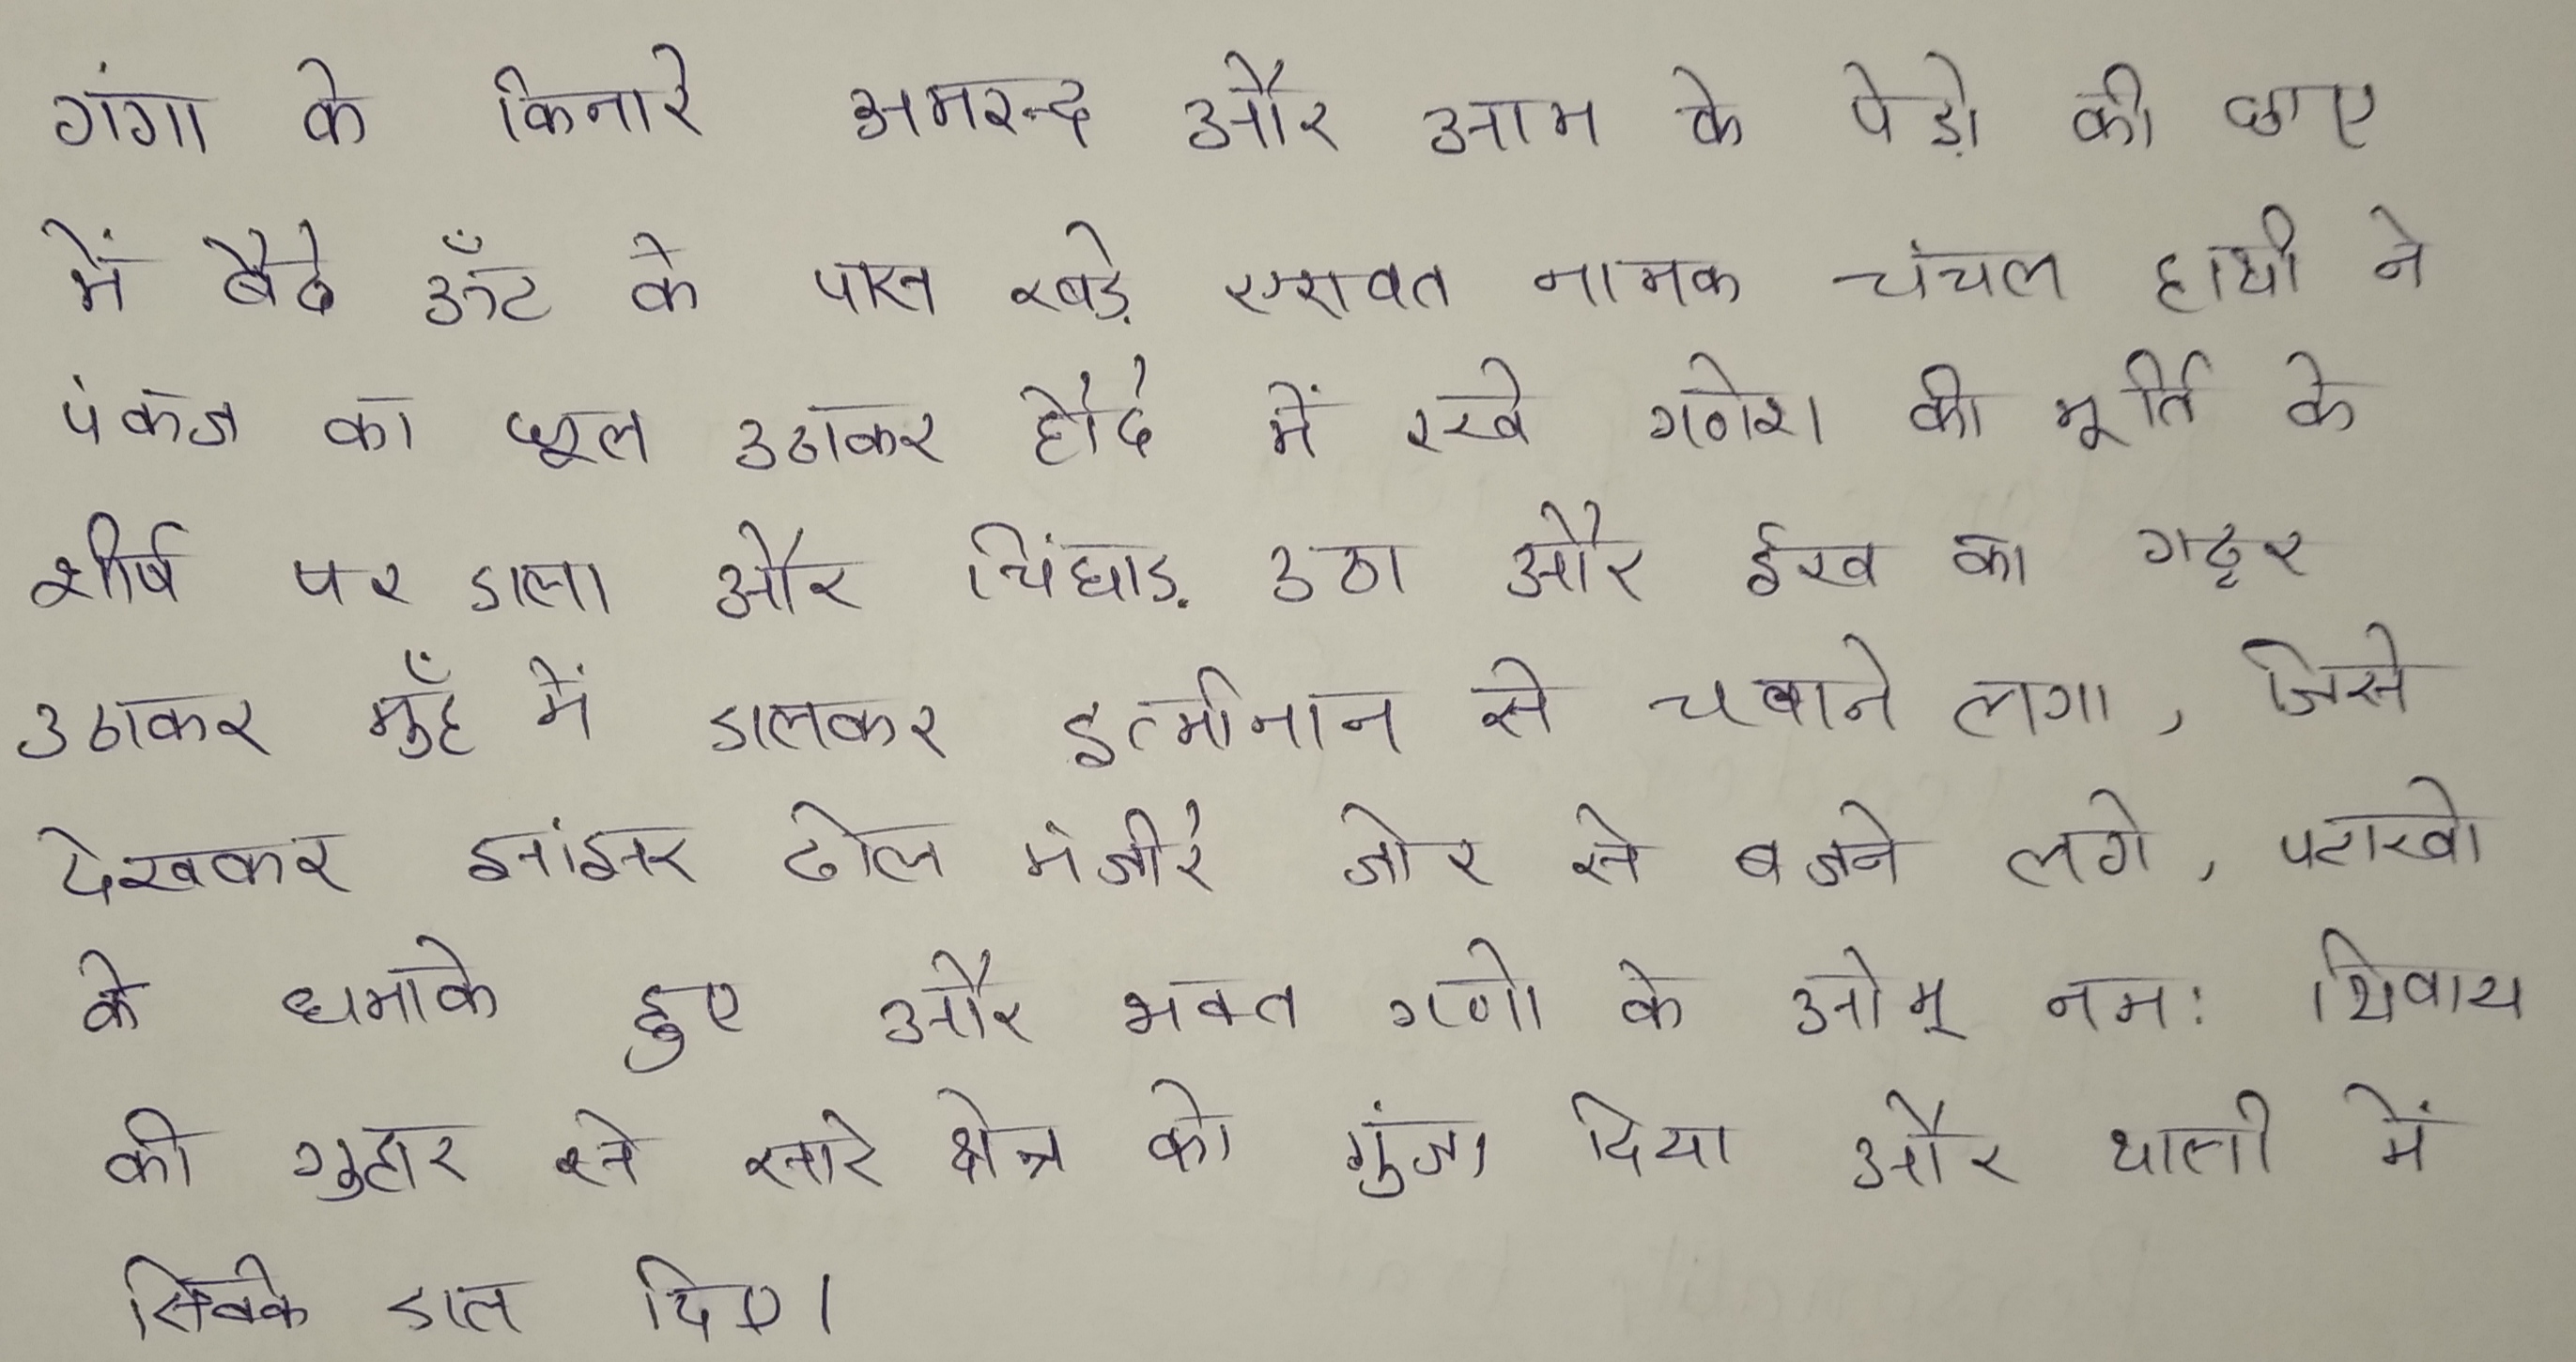 गंगा के किनारे अमरूद और आम के पेड़ो की छाए
में बैठे ऊँट के पास खड़े एरावत नामक चंचल हाथी ने
पंकज का फूल उठाकर हौदे में रखे गणेश की मूर्ति के
शीर्ष पर डाला और चिंघाड़ उठा और ईख का गट्ठर
उठाकर मुँह में डालकर इत्मीनान से चबाने लगा, जिसे
देखकर झांझर ढोल मंजीरे जोर से बजने लगे, पटाखो
के धमाके हुए और भक्त गणो के ओम् नमः शिवाय
की गुहार से सारे क्षेत्र को गुंजा दिया और थाली में
सिक्के डाल दिए।